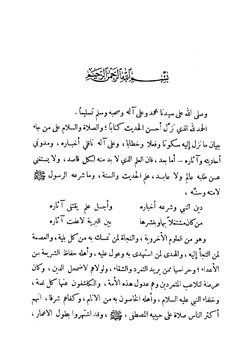 بسم الله الرحمن الرحيم
وصلى الله على سيدنا محمد وعلى آله وصحبه وسلم تسليما.
الحمد لله الذي نزّل أحسن الحديث كتابا؛ والصلاة والسلام على من جاء
ببيان ما نزل إليه سكونا وفعلا وخطابا، وعلى آله ناقلي أخباره، ومدوني
أحاديثه وآثاره – أما بعد، فان العلم الذي لا بد منه لكل قاصد، ولا يستغنى
عن طلبه عالم ولا عابد، علم الحديث والسنة، وما شرعه الرسول ﷺ
لامته وسنّه،
دين النبي وشرعه أخباره وأجل علم يقتفى آثاره
من كان مشتغلا بها وبنشرها بين البرية لا عفت آثاره
وهو من العلوم الأخروية، والنجاة لمن تمسك به من كل بلية، والعصمة
لمن التجأ إليه، والهدى لمن استهدى به وعول عليه، وأهله حفاظ الشريعة من
الأعداء؛ وحراسها ممن يريد التمرد والشقاء، ولولاهم لاضمحل الدين، وكان
عرضة لتلاعب المتمردين وهم عدول هذه الأمة، والكاشفون عنها كل غمة،
وخلفاء النبي عليه السلام، وأهله الخاصون به من الانام، وكفاهم شرفا، انهم
أكثر الناس صلاة على حبيبه المصطفى، ﷺ، وقد اشتهروا بطول الاعمار،